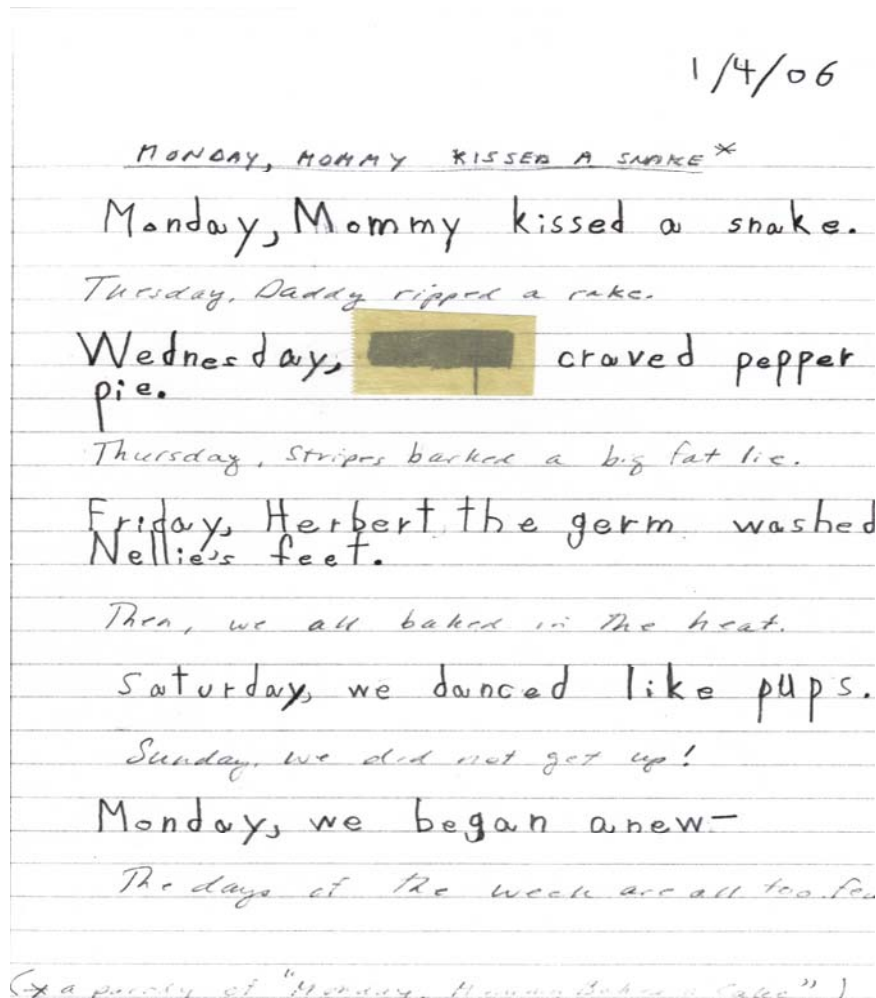 1/4/06
MONDAY, MOMMY KISSED A SNAKE*
Monday, Mommy kissed a snake.
Tuesday, Daddy ripped a rake.
Wednesday, craved pepper
pie.
Thursday, Stripes barked a big fat lie.
Friday, Herbert the germ washed
Nellie's feet.
Then, we all baked in the heat.
Saturday, we danced like pups.
Sunday, we did not get up!
Monday, we began anew—
The days of the week are all too few
(* a parody of "Monday, Mommy Baked a Cake")